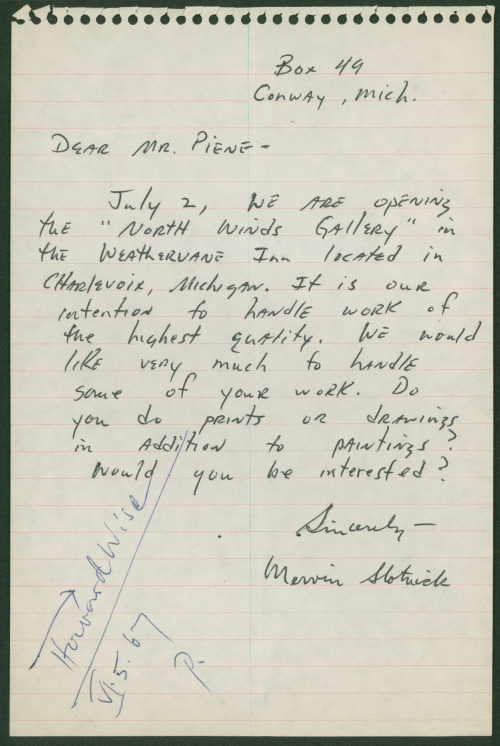 Box 49
Conway, Mich.
Dear Mr. Piene-
July 2, we are opening
the "North Winds Gallery" in
the Weathervane Inn located in
Charlevoix, Michigan. It is our
intention to handle work of
the highest quality. We would
like very much to handle
some of your work. Do
you do prints or drawings
in addition to paintings?
Would you be interested?
Sincerely-
Mervin Slotnick
Howard Wise
VI.5.67
P.